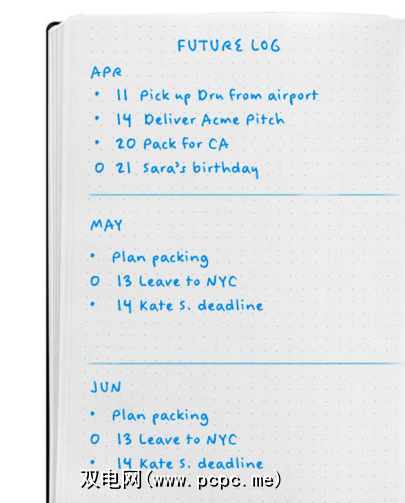 FUTURE LOG
APR
• 11 Pick up Dru from airport
• 14 Deliver Acme Pitch
• 20 Pack for CA
O 21 Sara's birthday
MAY
• Plan packing
O 13 Leave to NYC
• 14 Kate S. deadline
JUN
• Plan packing
O 13 Leave to NYC
• 14 Kate S. deadline
双电网(www.pcpc.me)